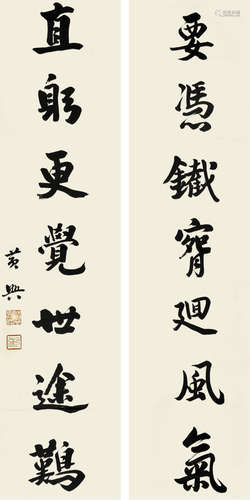 要馮鐵脊迴風氣
直躬更覺世途難
黃興